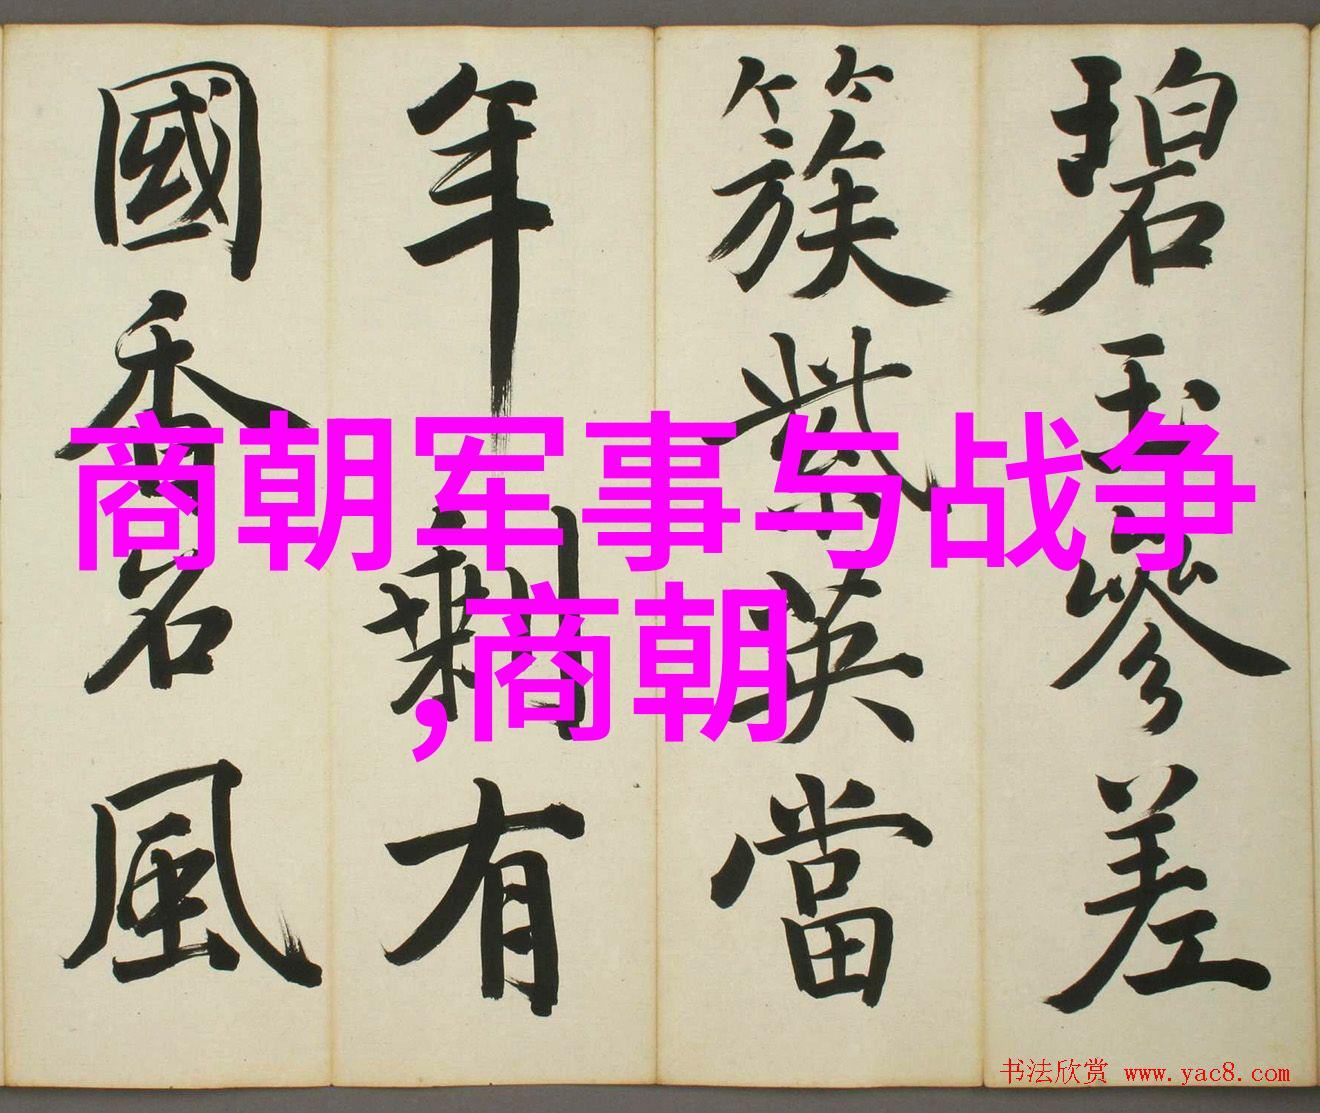 碧玉參差
簇紫英當
年剩有
國香名風
商朝军事与战争
,商朝
书法欣赏 www.yac8.com